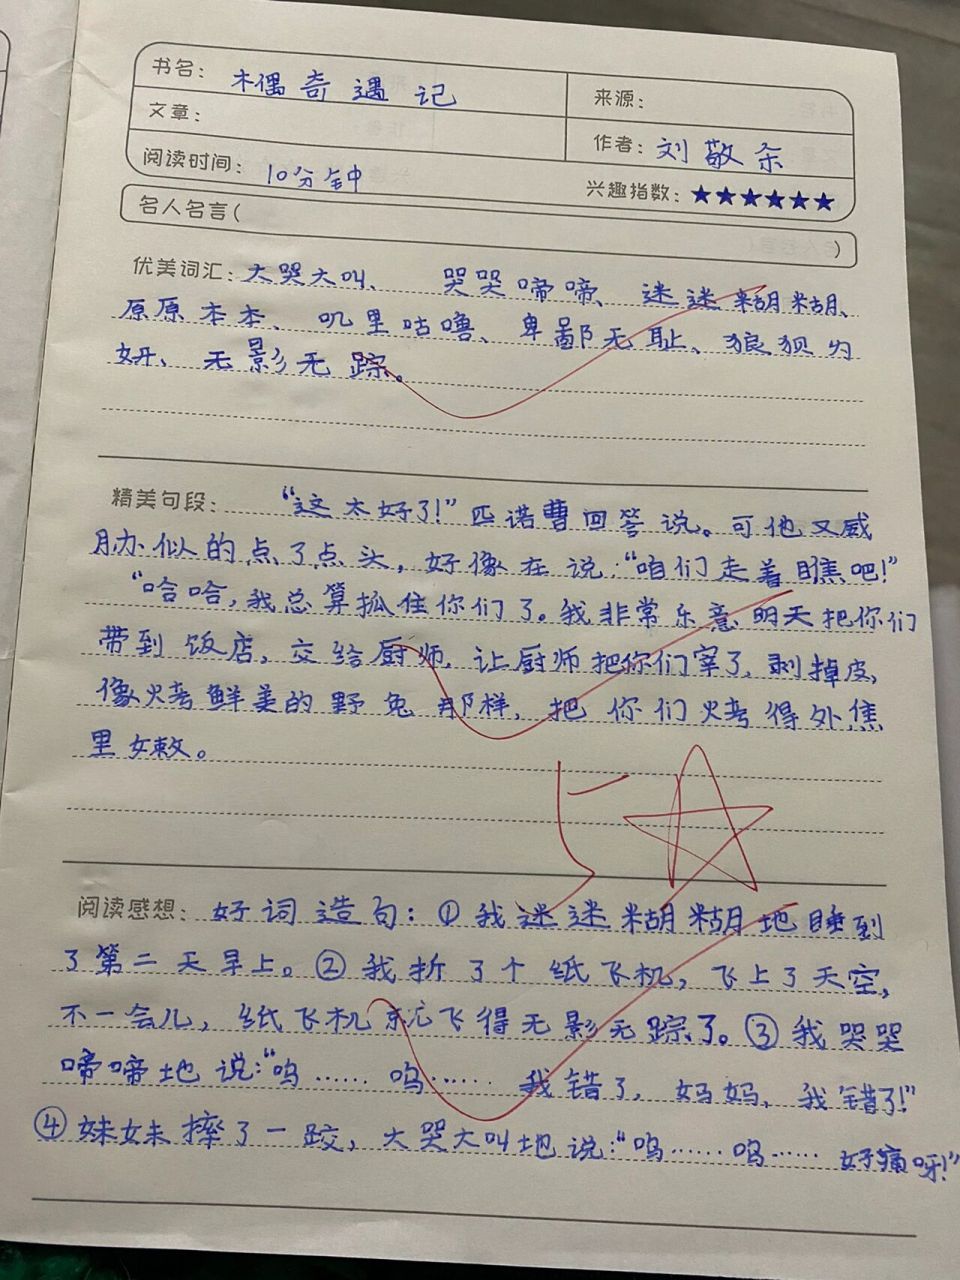 书名： 木偶奇遇记
来源：
文章：
作者： 刘敬余
阅读时间： 10分钟
兴趣指数：★★★★★★
名人名言（ ）
优美词汇：大哭大叫、 哭哭啼啼、迷迷糊糊、
原原本本、叽里咕噜、卑鄙无耻、狼狈为
奸、无影无踪。
精美句段： “这太好了！”匹诺曹回答说。可他又威
胁似的点了点头，好像在说：“咱们走着瞧吧！”
“哈哈，我总算抓住你们了。我非常乐意明天把你们
带到饭店，交给厨师，让厨师把你们宰了，剥掉皮，
像烤鲜美的野兔那样，把你们烤得外焦
里嫩。
5☆
阅读感想： 好词造句：①我迷迷糊糊地睡到
了第二天早上。②我折了个纸飞机，飞上了天空，
不一会儿，纸飞机就飞得无影无踪了。③我哭哭
啼啼地说：“呜……呜……我错了，妈妈，我错了！”
④妹妹摔了一跤，大哭大叫地说：“呜……呜……好痛呀！”